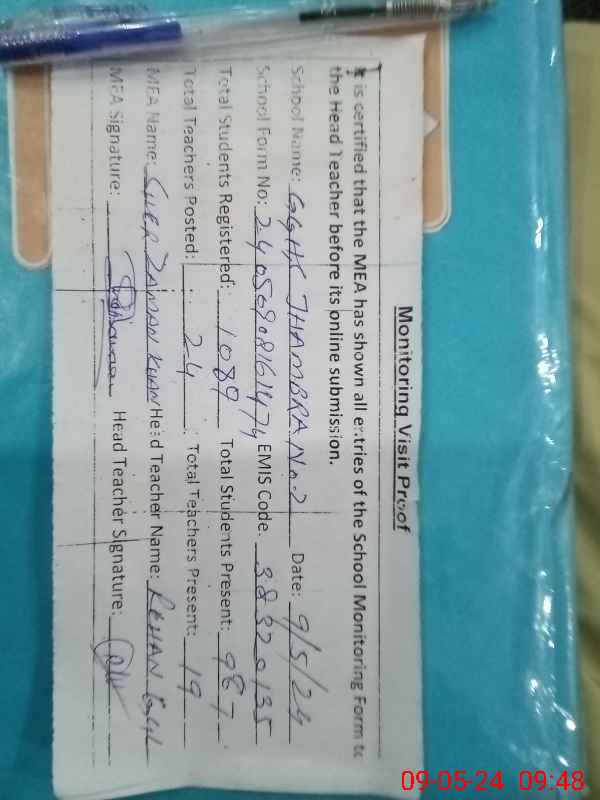 Monitoring Visit Proof
It is certified that the MEA has shown all entries of the School Monitoring Form to
the Head Teacher before its online submission.
School Name: GGHS JHAMBRA No.2 Date: 9/5/24
School Form No: EMIS Code. 38320135
Total Students Registered: 1089 Total Students Present: 987
Total Teachers Posted: 24 Total Teachers Present: 19
MEA Name: SHER ZAMAN KHAN Head Teacher Name: REHAN
MEA Signature: Head Teacher Signature:
09-05-24 09:48